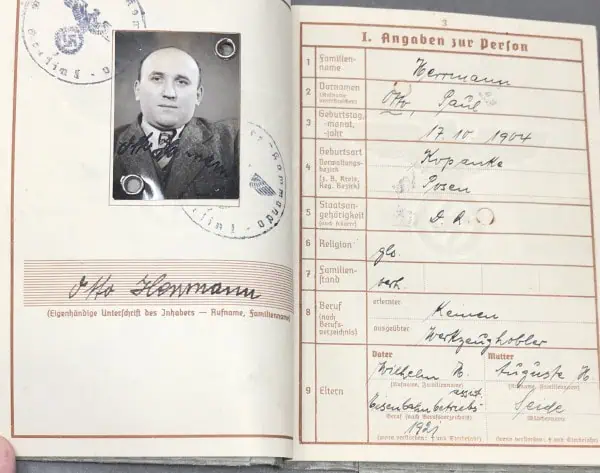 Otto Herrmann
(Eigenhändige Unterschrift des Inhabers — Rufname, Familienname)
3
I. Angaben zur Person
1 Familien-
name
Herrmann
2 Vornamen
(Rufname
unterstreichen)
Otto, Paul
3 Geburtstag,
-monat,
-jahr
17. 10. 1904
4 Geburtsort
Verwaltungs-
bezirk
(z. B. Kreis,
Reg. Bezirk)
Kopanke
Posen
5 Staatsan-
gehörigkeit
(auch frühere)
D. R.
6 Religion
glb.
7 Familien-
stand
verh.
8 Beruf
(nach
Berufs-
verzeichnis)
erlernter
Keinen
ausgeübter
Werkzeughobler
9 Eltern
Vater
Wilhelm H.
(Rufname, Familienname)
Eisenbahnbetriebs
assist.
Beruf (nach Berufsverzeichnis)
1921
(wenn verstorben: † und Sterbejahr)
Mutter
Auguste H.
(Rufname, Familienname)
Mädchenname
(wenn verstorben: † und Sterbejahr)